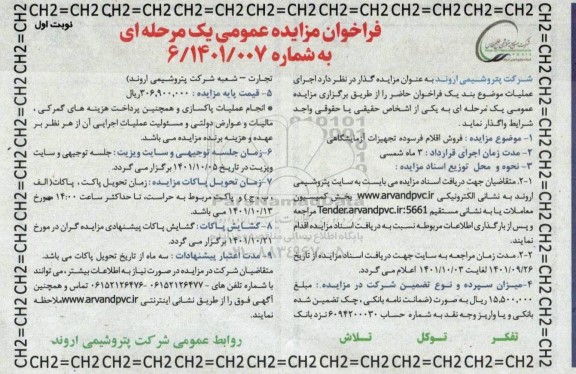 نوبت اول
فراخوان مزایده عمومی یک مرحله ای
به شماره ۶/۱۴۰۱/۰۰۷
شرکت پتروشیمی اروند به عنوان مزایده گذار در نظر دارد اجرای
عملیات موضوع بند یک فراخوان حاضر را از طریق برگزاری مزایده
عمومی یک مرحله ای به یکی از اشخاص حقیقی یا حقوقی واجد
شرایط واگذار نماید.
۱- موضوع مزایده : فروش اقلام فرسوده تجهیزات آزمایشگاهی
۲- مدت زمان اجرای قرارداد : ۳ ماه شمسی
۳- نحوه و محل توزیع اسناد مزایده :
۳-۱. متقاضیان جهت دریافت اسناد مزایده می بایست به سایت پتروشیمی
اروند به نشانی الکترونیکی www.arvandpvc.ir بخش کمیسیون
معاملات یا به نشانی مستقیم Tender.arvandpvc.ir:5661 مراجعه
و پس از بارگذاری اطلاعات مربوطه نسبت به دریافت اسناد مزایده اقدام
نمایند.
۳-۲. مدت زمان مراجعه به سایت جهت دریافت اسناد مزایده از تاریخ
۱۴۰۱/۰۹/۲۶ لغایت ۱۴۰۱/۱۰/۰۳ اعلام می گردد.
۴-میزان سپرده و نوع تضمین شرکت در مزایده : مبلغ
۱۵,۵۰۰,۰۰۰ ریال به صورت (ضمانت نامه بانکی، چک تضمین شده
بانکی و یا واریز وجه نقد به شماره حساب ۶۰۹۴۲۰۰۰۳۰ نزد بانک
تجارت – شعبه شرکت پتروشیمی اروند)
۵- قیمت پایه مزایده : ۳۰۶,۹۰۰,۰۰۰ریال
انجام عملیات پاکسازی و همچنین پرداخت هزینه های گمرکی ،
مالیات و عوارض دولتی و مسئولیت عملیات اجرایی آن از هر نظر بر
عهده و هزینه برنده مزایده می باشد.
۶-زمان جلسه توجیهی و سایت ویزیت : جلسه توجیهی و سایت
ویزیت در تاریخ ۱۴۰۱/۱۰/۰۵ برگزار می گردد.
۷- زمان تحویل پاکات مزایده : زمان تحویل پاکت ، پاکات(الف
،ب،ج) روزانه مربوط به حراست، تا حداکثر ساعت ۱۴:۰۰ مورخ
۱۴۰۱/۱۰/۱۳ می باشد.
۸- گشایش پاکات : گشایش پاکات پیشنهادی مزایده گران در مورخ
۱۴۰۱/۱۰/۲۱ برگزار می گردد.
۹-مدت اعتبار پیشنهادات : سه ماه از تاریخ تحویل پاکات می باشد.
متقاضیان شرکت در مزایده در صورت نیاز به اطلاعات بیشتر، می توانند
با شماره تلفن های ۰۶۱۵۲۱۲۶۴۷۰ - ۰۶۱۵۲۱۲۶۴۷۷ تماس و همچنین
آگهی فوق را از طریق نشانی اینترنتی www.arvandpvc.ir ملاحظه
نمایند.
تفکر توکل تلاش
روابط عمومی شرکت پتروشیمی اروند